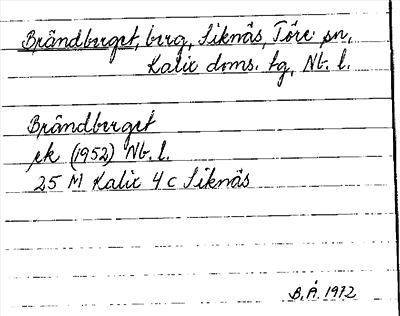 Brändberget, berg, Siknäs, Töre sn,
Kalix doms. tg, Nb. l.
Brändberget
ek (1952) Nb. l.
25 M Kalix 4 c Siknäs
B.Å. 1972